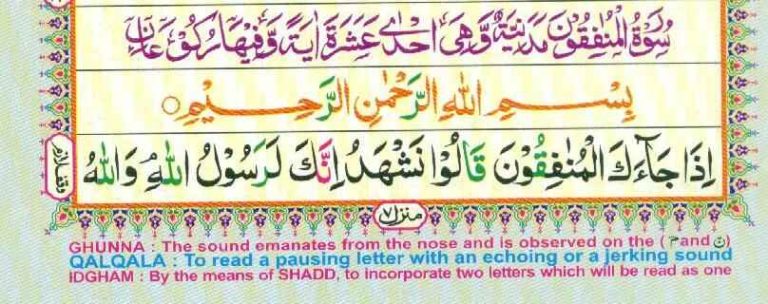 سُوْرَةُ الْمُنٰفِقُوْنَ مَدَنِيَّةٌ وَّهِيَ اِحْدٰى عَشْرَةَ اٰيَةً وَّفِيْهَا رُكُوْعَانِ
بِسْمِ اللّٰهِ الرَّحْمٰنِ الرَّحِيْمِ ○
اِذَا جَآءَكَ الْمُنٰفِقُوْنَ قَالُوْا نَشْهَدُ اِنَّكَ لَرَسُوْلُ اللّٰهِ ۘ وَاللّٰهُ
وقف لازم
منزل ٧
GHUNNA : The sound emanates from the nose and is observed on the ( م and ن )
QALQALA : To read a pausing letter with an echoing or a jerking sound
IDGHAM : By the means of SHADD, to incorporate two letters which will be read as one